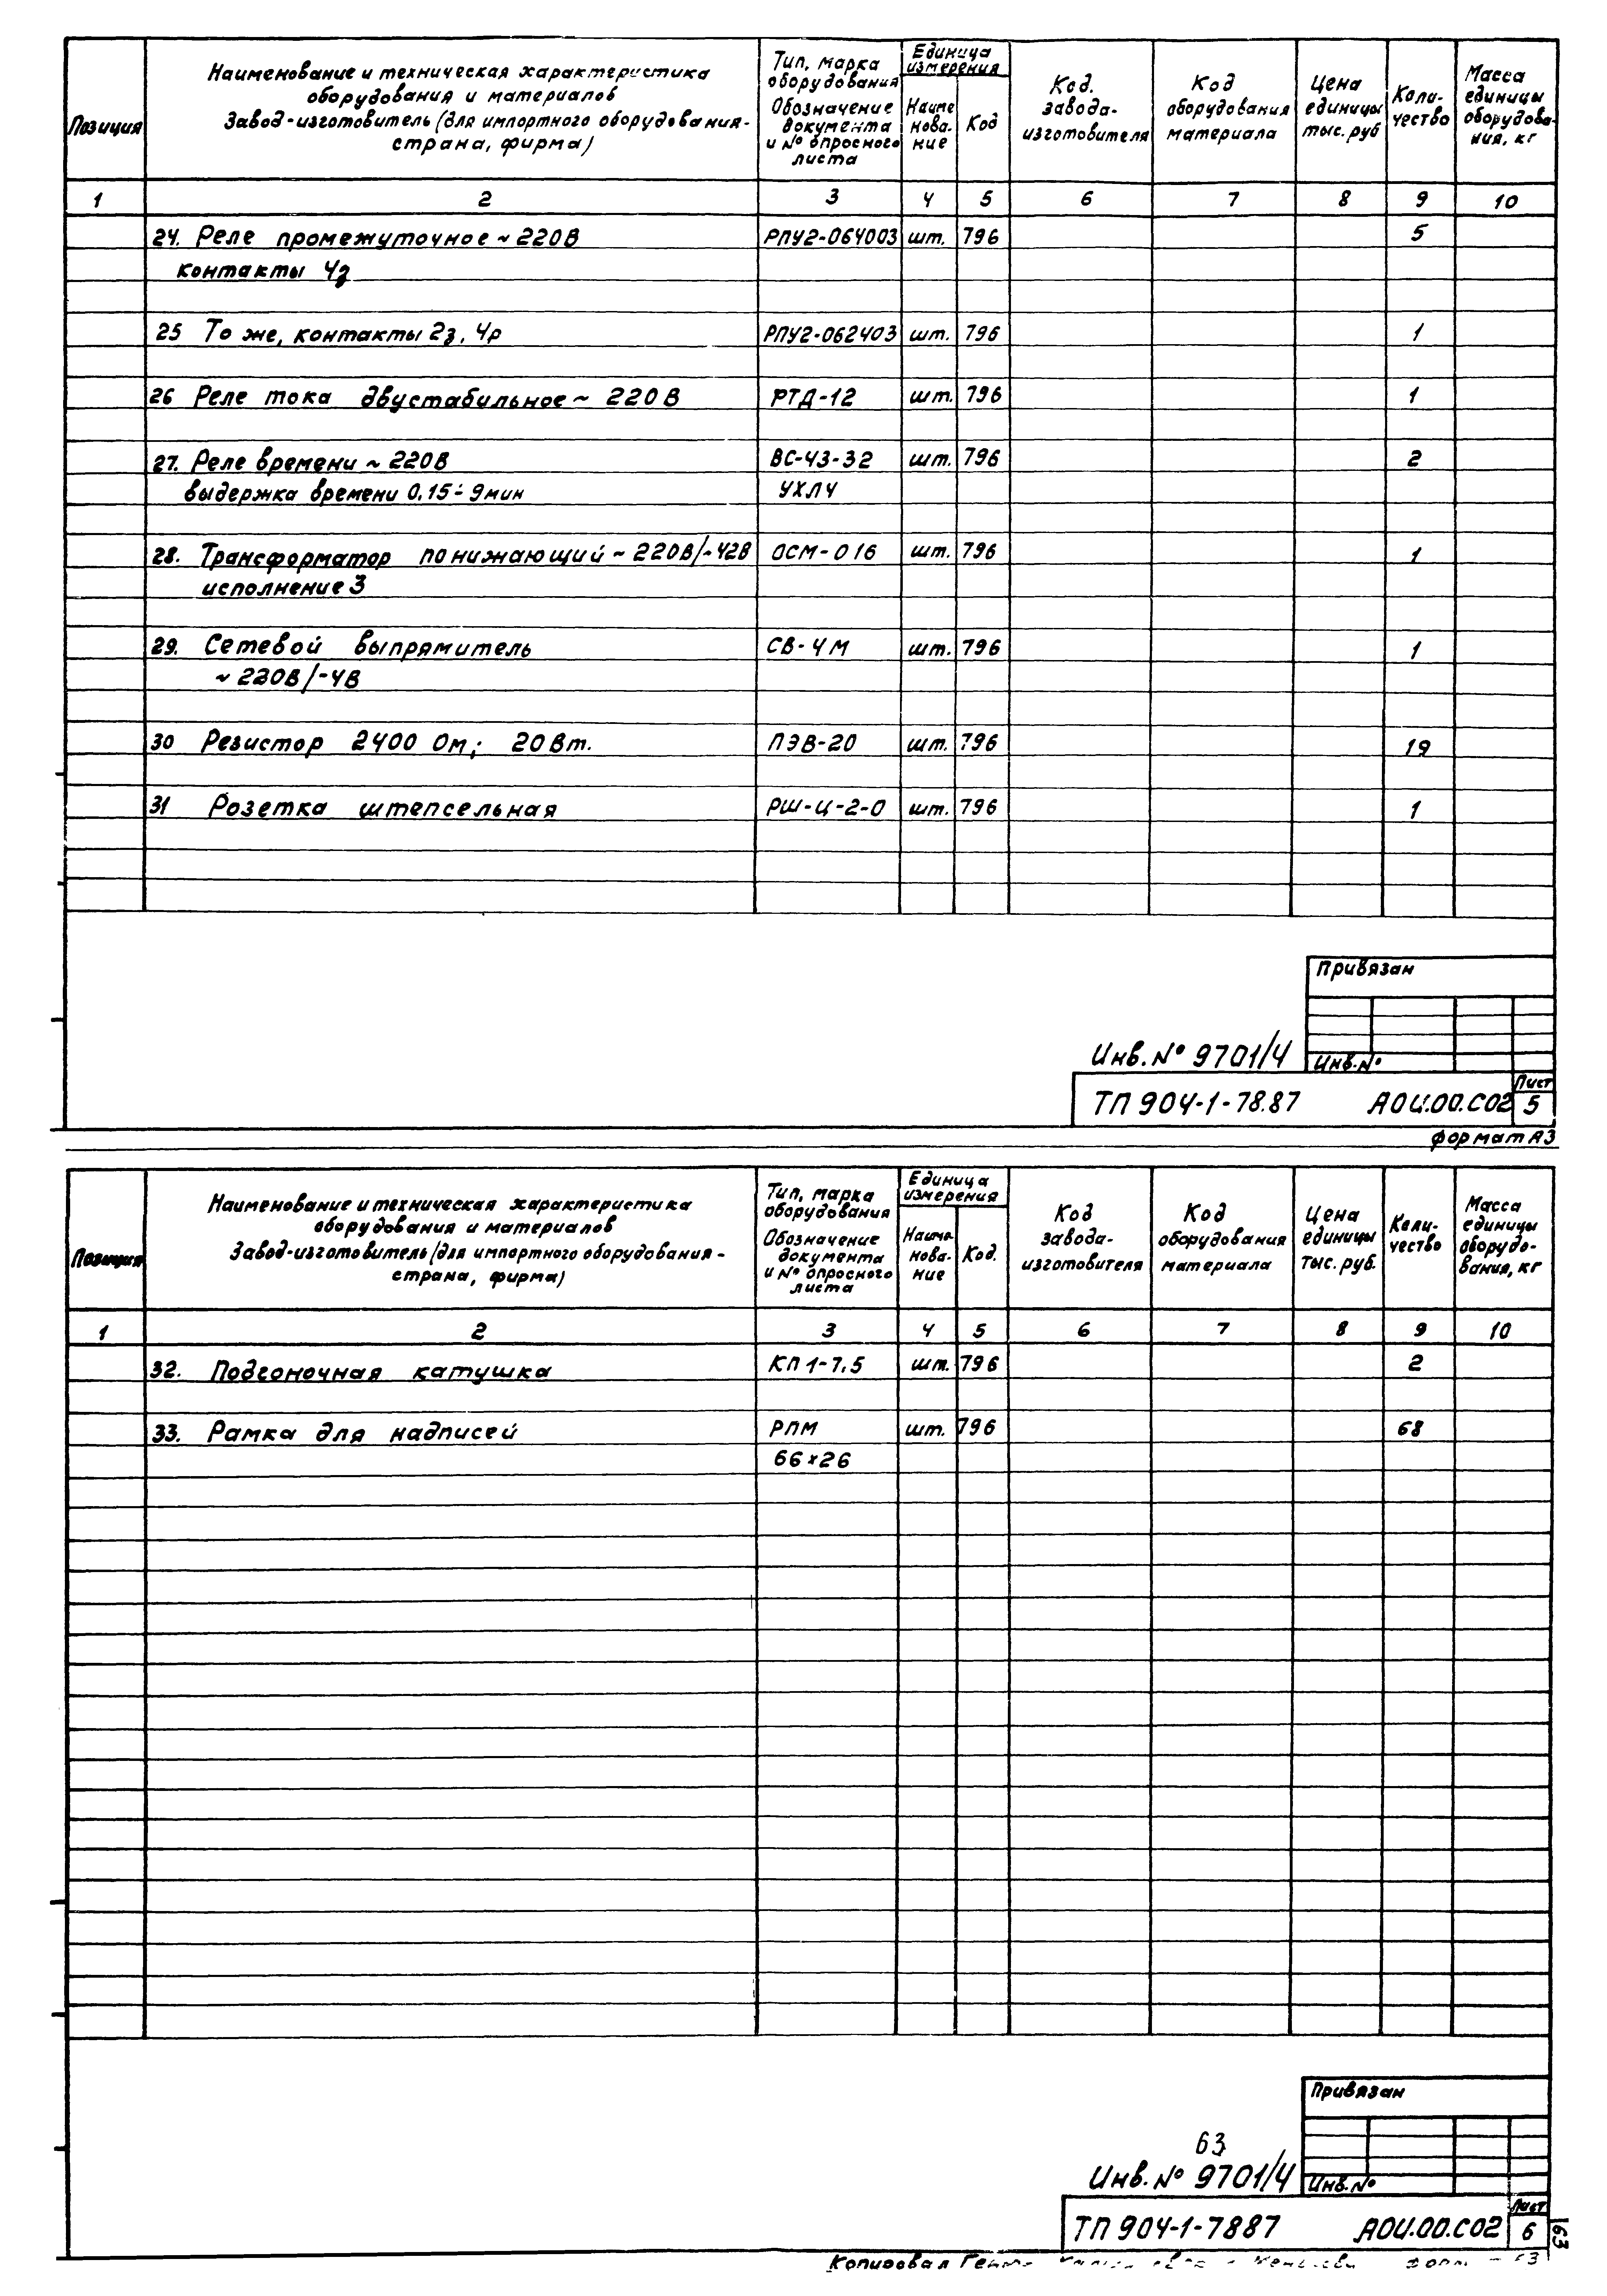 Позиция
Наименование и техническая характеристика
оборудования и материалов
Завод-изготовитель (для импортного оборудования-
страна, фирма)
Тип, марка
оборудования
Обозначение
документа
и № опросного
листа
Единица
измерения
Наиме
нова-
ние
Код
Код.
завода-
изготовителя
Код
оборудования
материала
Цена
единицы
тыс. руб
Коли-
чество
Масса
единицы
оборудова-
ния, кг
1 2 3 4 5 6 7 8 9 10
24. Реле промежуточное ~ 220В РПУ2-064003 шт. 796 5
контакты 4з
25 То же, контакты 2з, 4р РПУ2-062403 шт. 796 1
26 Реле тока двустабильное ~ 220В РТД-12 шт. 796 1
27. Реле времени ~ 220В ВС-43-32 шт. 796 2
выдержка времени 0,15÷9мин УХЛ4
28. Трансформатор понижающий ~ 220В/~42В ОСМ-016 шт. 796 1
исполнение 3
29. Сетевой выпрямитель СВ-4М шт. 796 1
~ 220В/-4В
30 Резистор 2400 Ом; 20Вт. ПЭВ-20 шт. 796 19
31 Розетка штепсельная РШ-Ц-2-0 шт. 796 1
Привязан
Инв. № 9701/4
Инв. №
ТП 904-1-78.87 АОИ.00.С02
Лист
5
формат А3
Позиция
Наименование и техническая характеристика
оборудования и материалов
Завод-изготовитель (для импортного оборудования-
страна, фирма)
Тип, марка
оборудования
Обозначение
документа
и № опросного
листа
Единица
измерения
Наиме
нова-
ние
Код.
Код
завода-
изготовителя
Код
оборудования
материала
Цена
единицы
тыс. руб.
Коли-
чество
Масса
единицы
оборудо-
вания, кг
1 2 3 4 5 6 7 8 9 10
32. Подгоночная катушка КП1-7,5 шт. 796 2
33. Рамка для надписей РПМ шт. 796 68
66×26
Привязан
63
Инв. № 9701/4
Инв. №
ТП 904-1-7887 АОИ.00.С02
Лист
6
63
Копировал